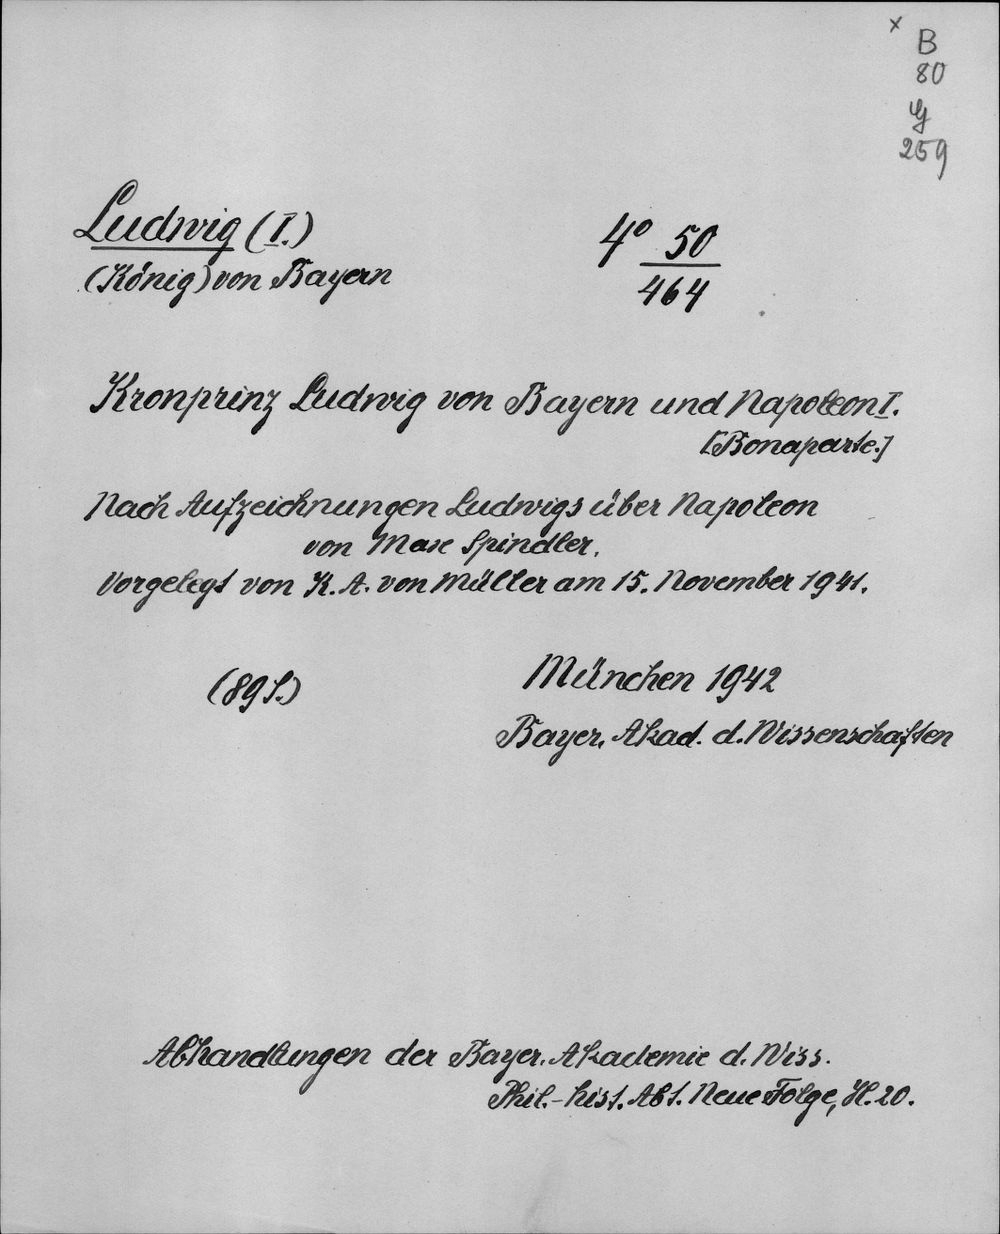 x B
80
G
259
Ludwig (I.)
(König) von Bayern
4° 50
464
Kronprinz Ludwig von Bayern und Napoleon I.
[Bonaparte.]
Nach Aufzeichnungen Ludwigs über Napoleon
von Max Spindler.
Vorgelegt von K. A. von Müller am 15. November 1941.
(89 S.)
München 1942
Bayer. Akad. d. Wissenschaften
Abhandlungen der Bayer. Akademie d. Wiss.
Phil.-hist. Abt. Neue Folge, H. 20.